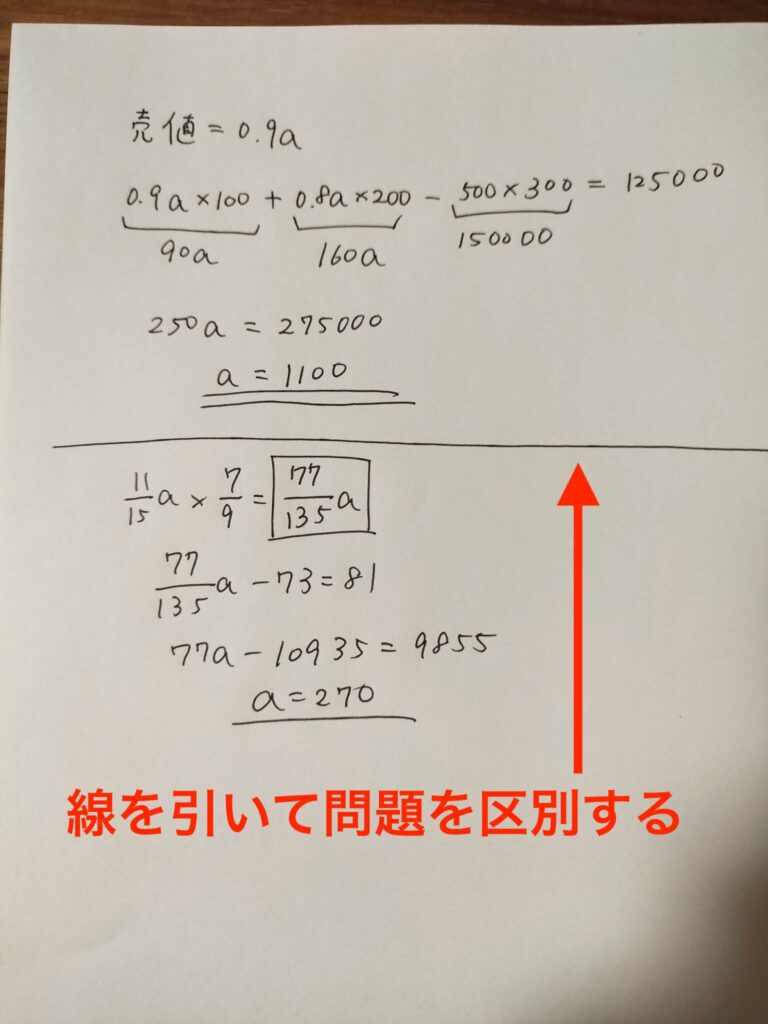 売値=0.9a
0.9a×100+0.8a×200-500×300=125000
90a 160a 150000
250a=275000
a=1100
11/15a×7/9=77/135a
77/135a-73=81
77a-10935=9855
a=270
線を引いて問題を区別する